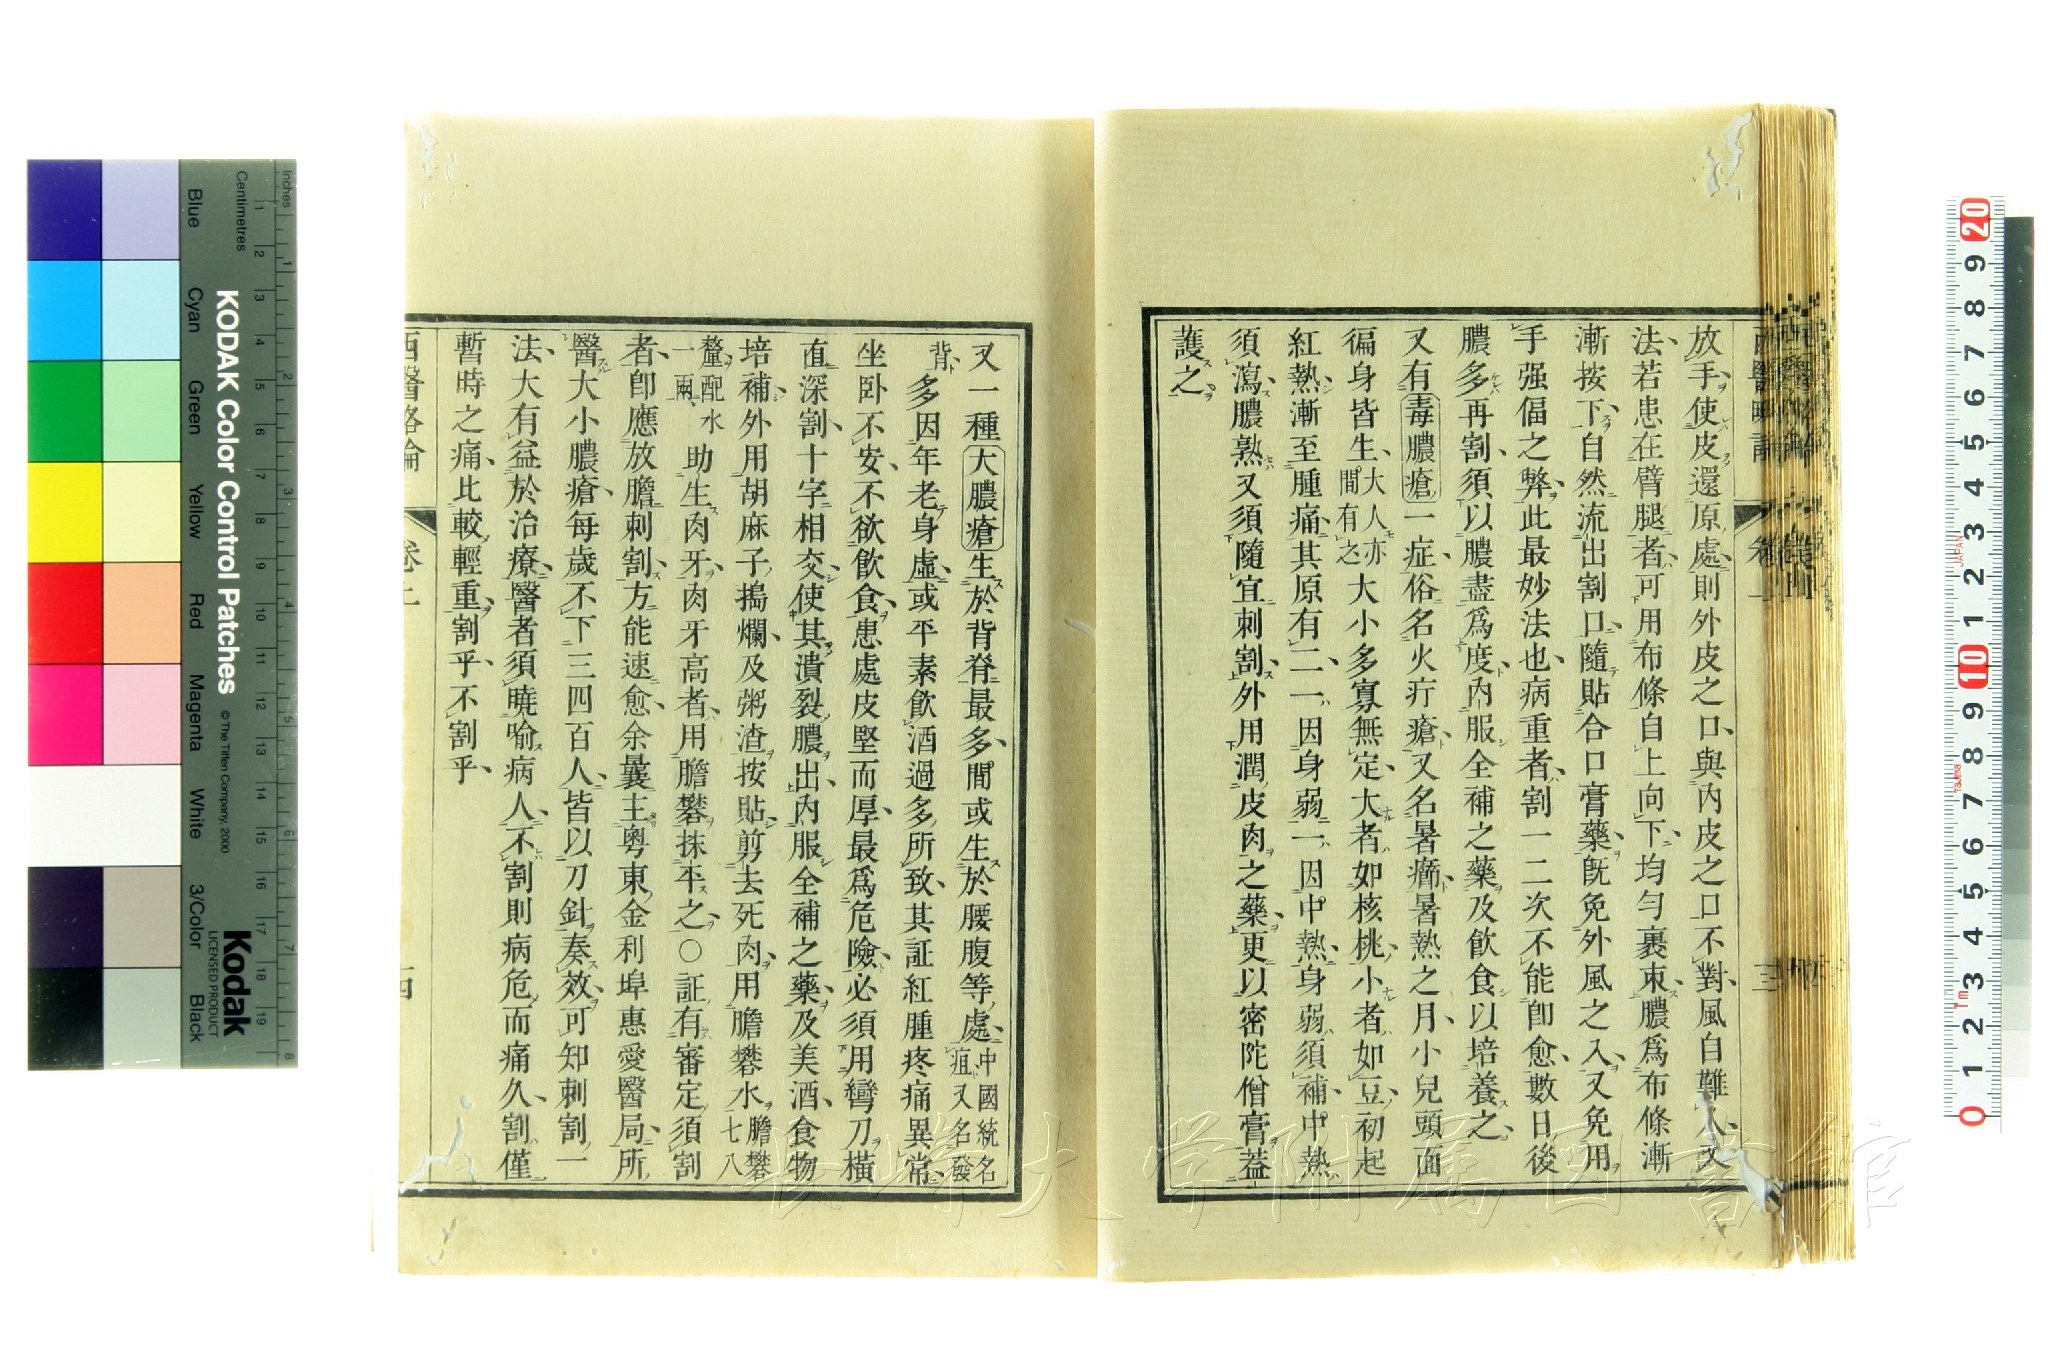 放手使皮還原處則外皮之口與內皮之口不對風自難入又
法若患在臂腿者可用布條自上向下均勻裹束膿爲布條漸
漸按下自然流出割口隨貼合口膏藥旣免外風之入又免用
手强偪之弊此最妙法也病重者割一二次不能卽愈數日後
膿多再割須以膿盡爲度內服全補之藥及飲食以培養之
又有毒膿瘡一症俗名火疔瘡又名暑癤暑熱之月小兒頭面
徧身皆生大人亦
間有之大小多寡無定大者如核桃小者如豆初起
紅熱漸至腫痛其原有二一因身弱一因中熱身弱須補中熱
須瀉膿熟又須隨宜刺割外用潤皮肉之藥更以密陀僧膏蓋
護之
又一種大膿瘡生於背脊最多間或生於腰腹等處中國統名
疽又名發
背多因年老身虛或平素飲酒過多所致其証紅腫疼痛異常
坐卧不安不欲飲食患處皮堅而厚最爲危險必須用彎刀橫
直深割十字相交使其潰裂膿出內服全補之藥及美酒食物
培補外用胡麻子搗爛及粥渣按貼剪去死肉用膽礬水膽礬
七八
釐配水
一兩助生肉牙肉牙高者用膽礬抹平之○証有審定須割
者卽應放膽刺割方能速愈余曩主粵東金利埠惠愛醫局所
醫大小膿瘡每歲不下三四百人皆以刀針奏效可知刺割一
法大有益於治療醫者須曉喻病人不割則病危而痛久割僅
暫時之痛比較輕重割乎不割乎
西醫略論
KODAK Color Control Patches
© The Tiffen Company, 2000
Kodak
LICENSED PRODUCT
Inches
Centimetres
Blue
Cyan
Green
Yellow
Red
Magenta
White
3/Color
Black
1 2 3 4 5 6 7 8 9 10 11 12 13 14 15 16 17 18 19
1 2 3 4 5 6 7 8
20 9 8 7 6 5 4 3 2 1 10 9 8 7 6 5 4 3 2 1 0
JAPAN
1m
長崎大学附属図書館